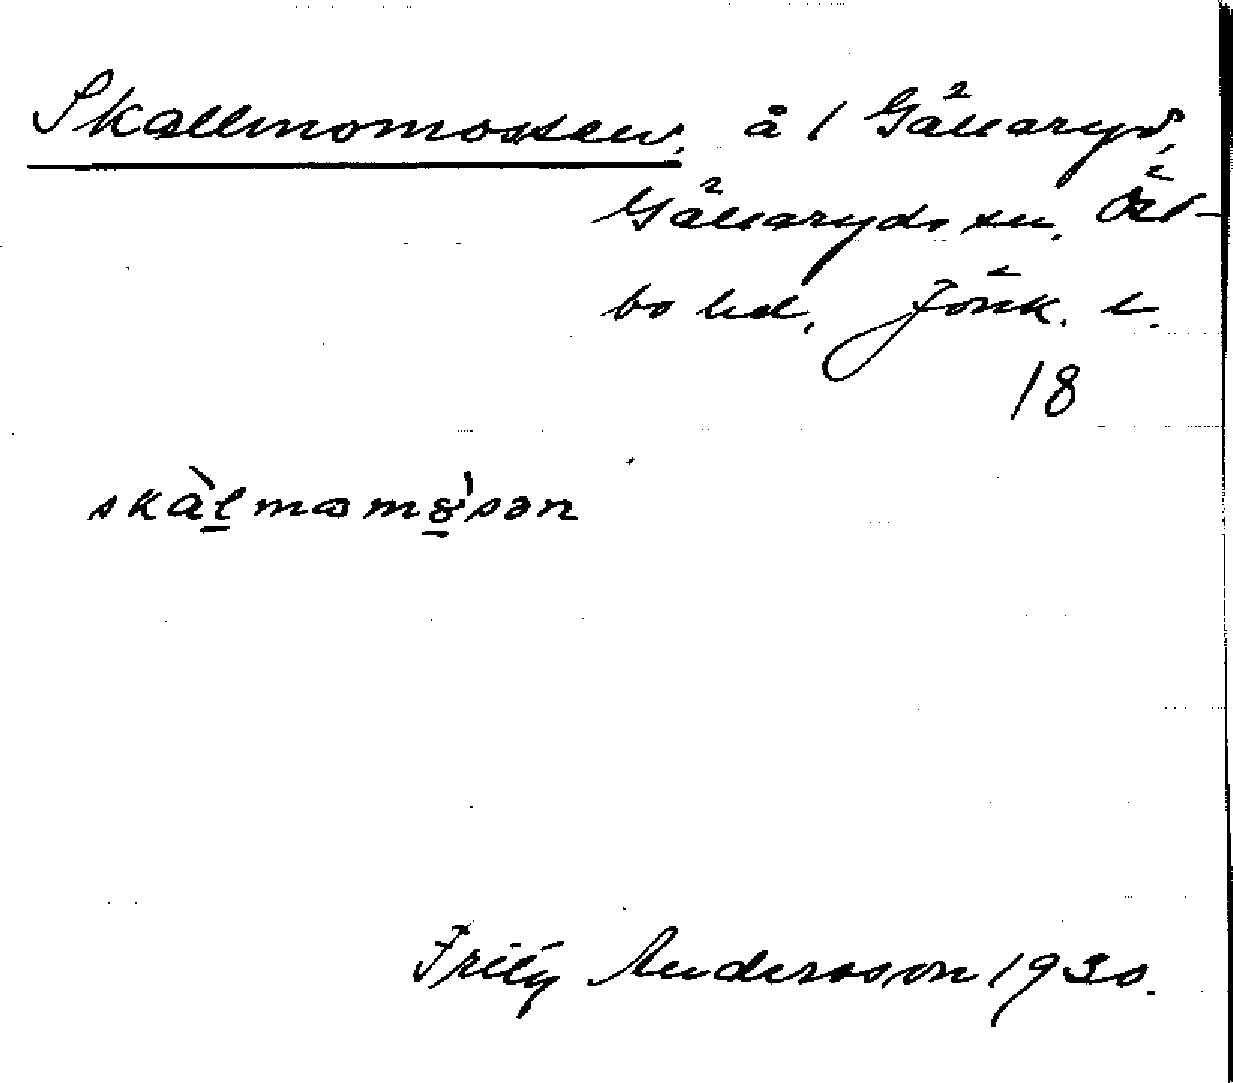 Skallmomossen, å 1 Gällaryd,
Gällaryds sn. Öst-
bo hd, Jönk. l.
18
skàlmamo'sən
Fritz Andersson 1930.